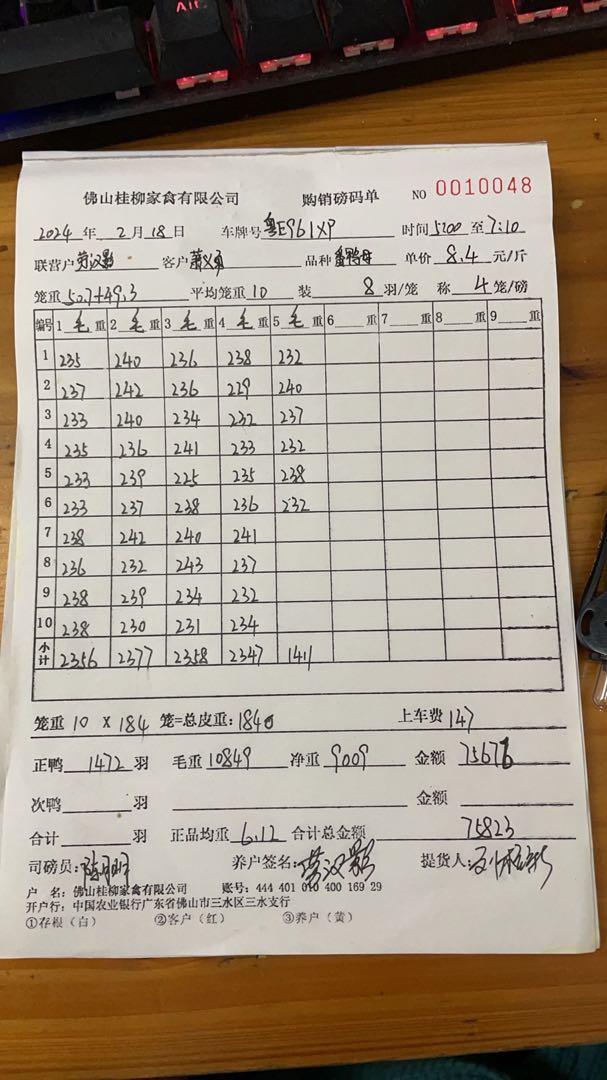 佛山桂柳家禽有限公司 购销磅码单 NO 0010048
2024 年 2 月 18 日 车牌号 粤E961XP 时间 5:00 至 7:10
联营户 客户 品种 番鸭母 单价 8.4 元/斤
笼重 50.7+49.3 平均笼重 10 装 8 羽/笼 称 4 笼/磅
编号 1 毛 重 2 毛 重 3 毛 重 4 毛 重 5 毛 重 6 重 7 重 8 重 9 重
1 235 240 236 238 232
2 237 242 236 229 240
3 233 240 234 232 237
4 235 236 241 233 232
5 233 239 225 235 238
6 233 237 238 236 232
7 238 242 240 241
8 236 232 243 237
9 238 239 234 232
10 238 230 231 234
小计 2356 2377 2358 2347 1411
笼重 10 X 184 笼=总皮重: 1840 上车费 147
正鸭 1472 羽 毛重 10849 净重 9009 金额 75676
次鸭 羽 金额
合计 羽 正品均重 6.12 合计总金额 75823
司磅员: 养户签名: 提货人:
户 名: 佛山桂柳家禽有限公司 账号: 444 401 010 400 169 29
开户行: 中国农业银行广东省佛山市三水区三水支行
①存根(白) ②客户(红) ③养户(黄)